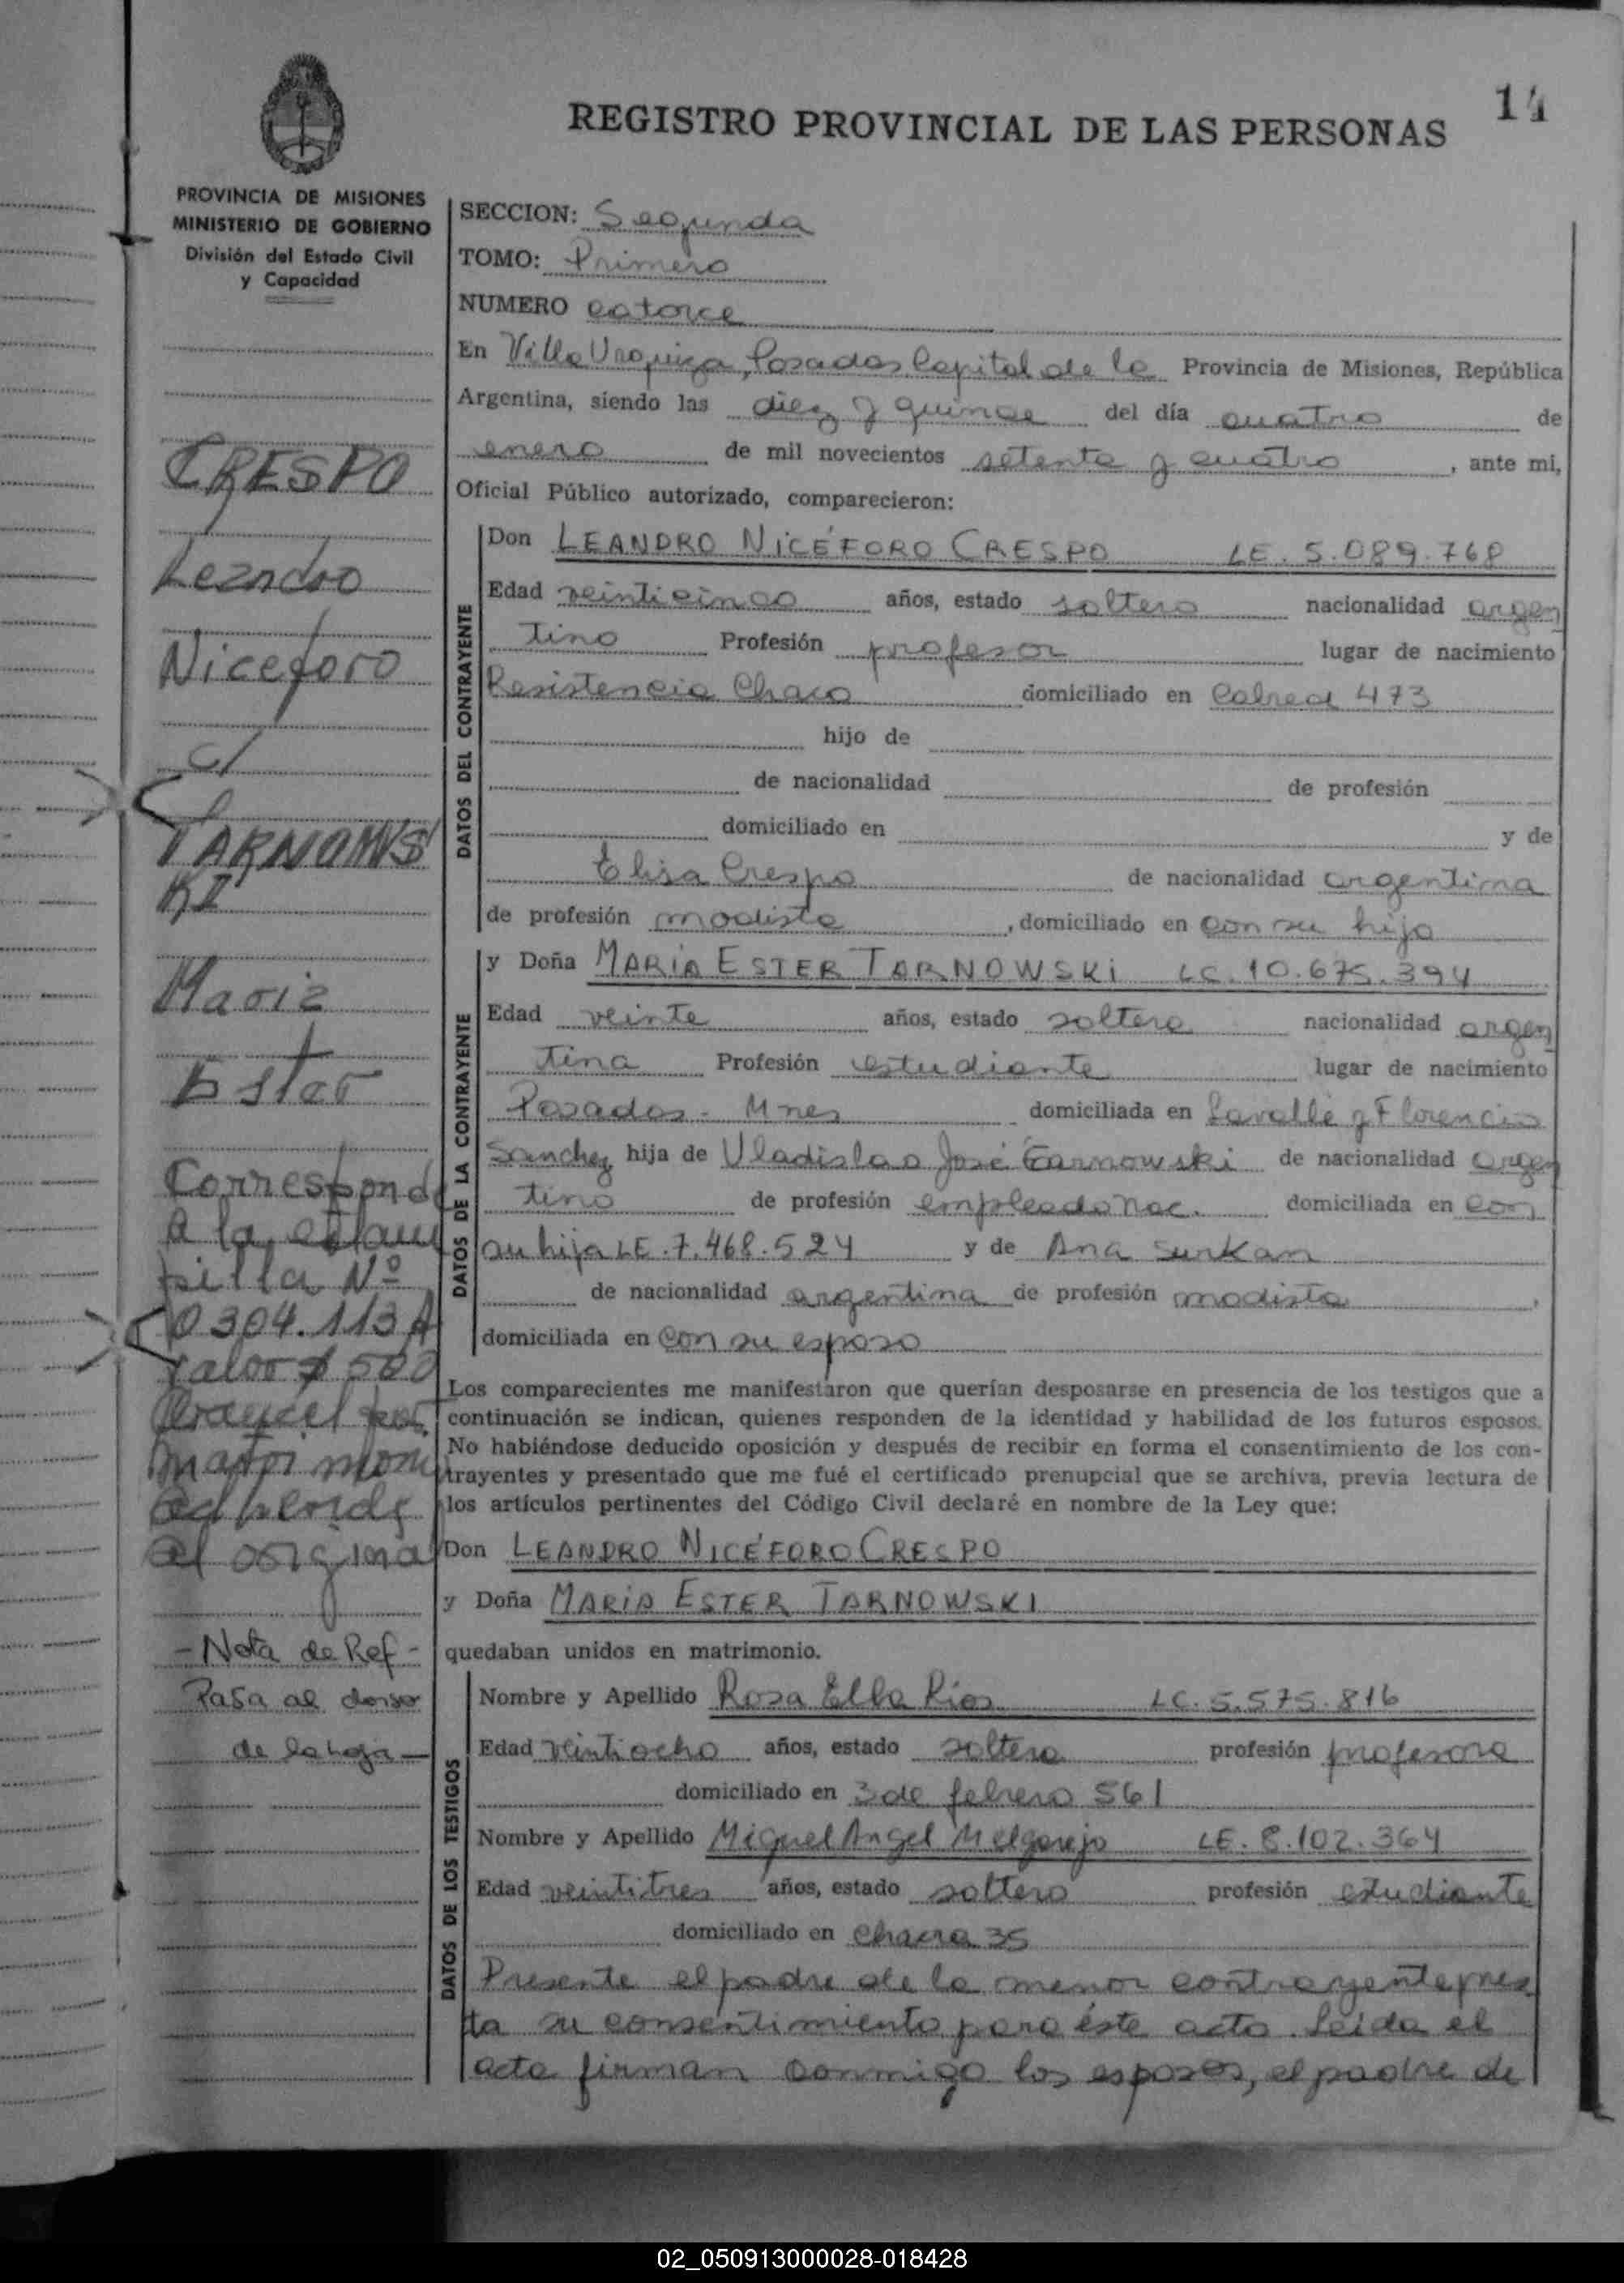 14
REGISTRO PROVINCIAL DE LAS PERSONAS
PROVINCIA DE MISIONES
MINISTERIO DE GOBIERNO
División del Estado Civil
y Capacidad
CRESPO
Leandro
Niceforo
c/
TARNOWS
KI
Maria
Ester
Corresponde
a la estam
pilla Nº
0304.113A
valor $ 500
arancel por
matrimonio
adherida
al original
- Nota de Ref -
Pasa al dorso
de la hoja -
SECCION: Segunda
TOMO: Primero
NUMERO catorce
En Villa Urquiza, Posadas Capital de la Provincia de Misiones, República
Argentina, siendo las diez y quince del día cuatro de
enero de mil novecientos setenta y cuatro, ante mi,
Oficial Público autorizado, comparecieron:
DATOS DEL CONTRAYENTE
Don LEANDRO NICÉFORO CRESPO LE. 5.089.768
Edad veinticinco años, estado soltero nacionalidad argen
tino Profesión profesor lugar de nacimiento
Resistencia Chaco domiciliado en Cabred 473
hijo de
de nacionalidad de profesión
domiciliado en y de
Elisa Crespo de nacionalidad argentina
de profesión modista, domiciliado en con su hijo
DATOS DE LA CONTRAYENTE
y Doña MARÍA ESTER TARNOWSKI LC. 10.675.394
Edad veinte años, estado soltera nacionalidad argen
tina Profesión estudiante lugar de nacimiento
Posadas - Mnes domiciliada en Lavalle y Florencio
Sanchez hija de Vladislao José Tarnowski de nacionalidad argen
tino de profesión empleado nac. domiciliada en con
su hija LE. 7.468.524 y de Ana Surkan
de nacionalidad argentina de profesión modista,
domiciliada en con su esposo
Los comparecientes me manifestaron que querían desposarse en presencia de los testigos que a
continuación se indican, quienes responden de la identidad y habilidad de los futuros esposos.
No habiéndose deducido oposición y después de recibir en forma el consentimiento de los con-
trayentes y presentado que me fué el certificado prenupcial que se archiva, previa lectura de
los artículos pertinentes del Código Civil declaré en nombre de la Ley que:
Don LEANDRO NICÉFORO CRESPO
y Doña MARÍA ESTER TARNOWSKI
quedaban unidos en matrimonio.
DATOS DE LOS TESTIGOS
Nombre y Apellido Rosa Elba Rios LC. 5.575.816
Edad veintiocho años, estado soltera profesión profesora
domiciliado en 3 de febrero 561
Nombre y Apellido Miguel Angel Melgarejo LE. 8.102.364
Edad veintitres años, estado soltero profesión estudiante
domiciliado en Chacra 35
Presente el padre de la menor contrayente pres
ta su consentimiento para éste acto. Leida el
acta firman conmigo los esposos, el padre de
02_050913000028-018428